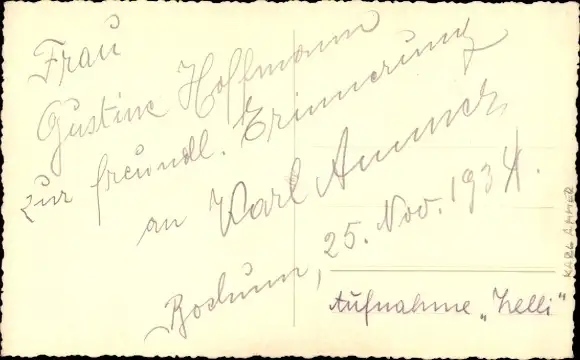 Frau
Gustine Hoffmann
zur freundl. Erinnerung
an Karl Ammer
Bochum, 25. Nov. 1934.
Aufnahme „Helli"
KARL AMMER